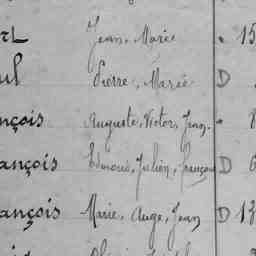 Jean, Marie 15
Pierre, Marie D
nçois Auguste, Victor, Jean. 8
ançois Edmond, Julien, françois D 6
ançois Marie, Ange, Jean D 13